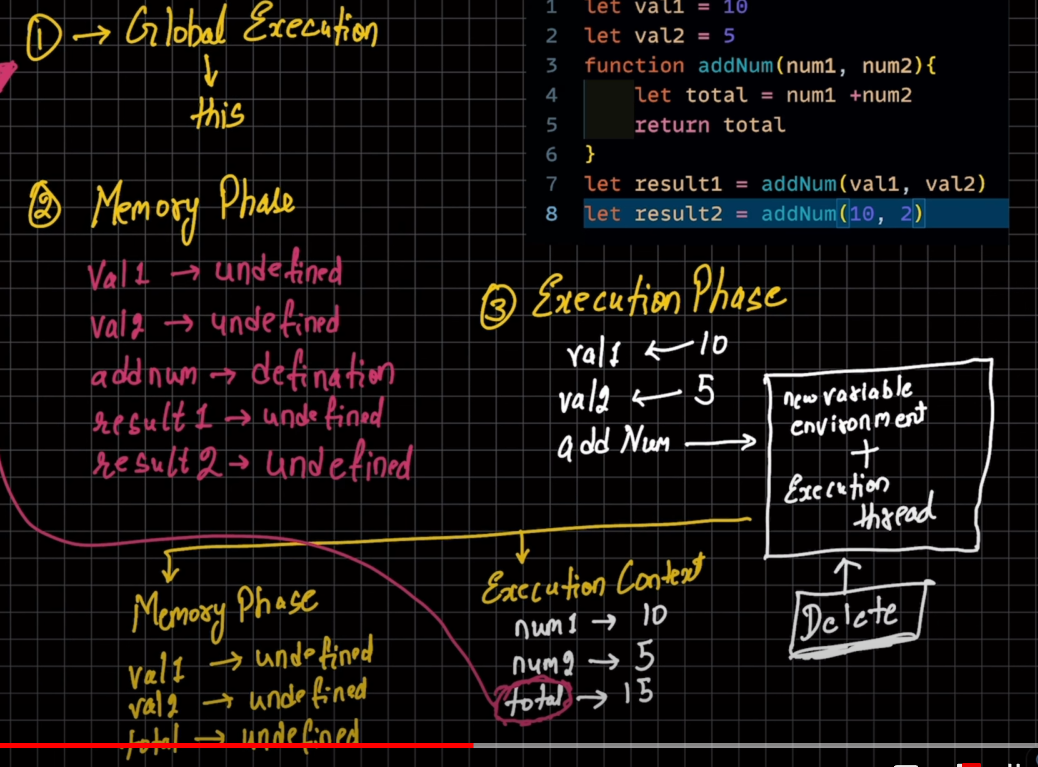 ① → Global Execution
↓
this
1 let val1 = 10
2 let val2 = 5
3 function addNum(num1, num2){
4 let total = num1 +num2
5 return total
6 }
7 let result1 = addNum(val1, val2)
8 let result2 = addNum(10, 2)
② Memory Phase
Val1 → undefined
val2 → undefined
addnum → defination
result1 → undefined
result2 → undefined
③ Execution Phase
val1 ← 10
val2 ← 5
add Num →
new variable
environment
+
Execution
thread
Delete
Memory Phase
val1 → undefined
val2 → undefined
total → undefined
Execution Context
num1 → 10
num2 → 5
total → 15